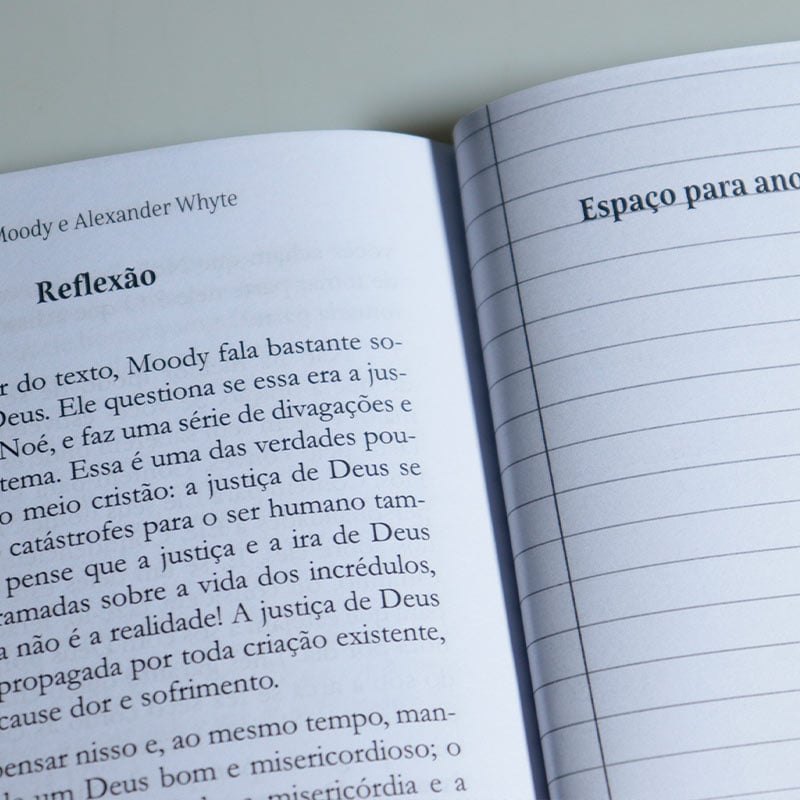 Moody e Alexander Whyte
Reflexão
r do texto, Moody fala bastante so-
Deus. Ele questiona se essa era a jus-
Noé, e faz uma série de divagações e
tema. Essa é uma das verdades pou-
o meio cristão: a justiça de Deus se
catástrofes para o ser humano tam-
pense que a justiça e a ira de Deus
ramadas sobre a vida dos incrédulos,
a não é a realidade! A justiça de Deus
propagada por toda criação existente,
cause dor e sofrimento.
pensar nisso e, ao mesmo tempo, man-
um Deus bom e misericordioso; o
misericórdia e a
Espaço para ano